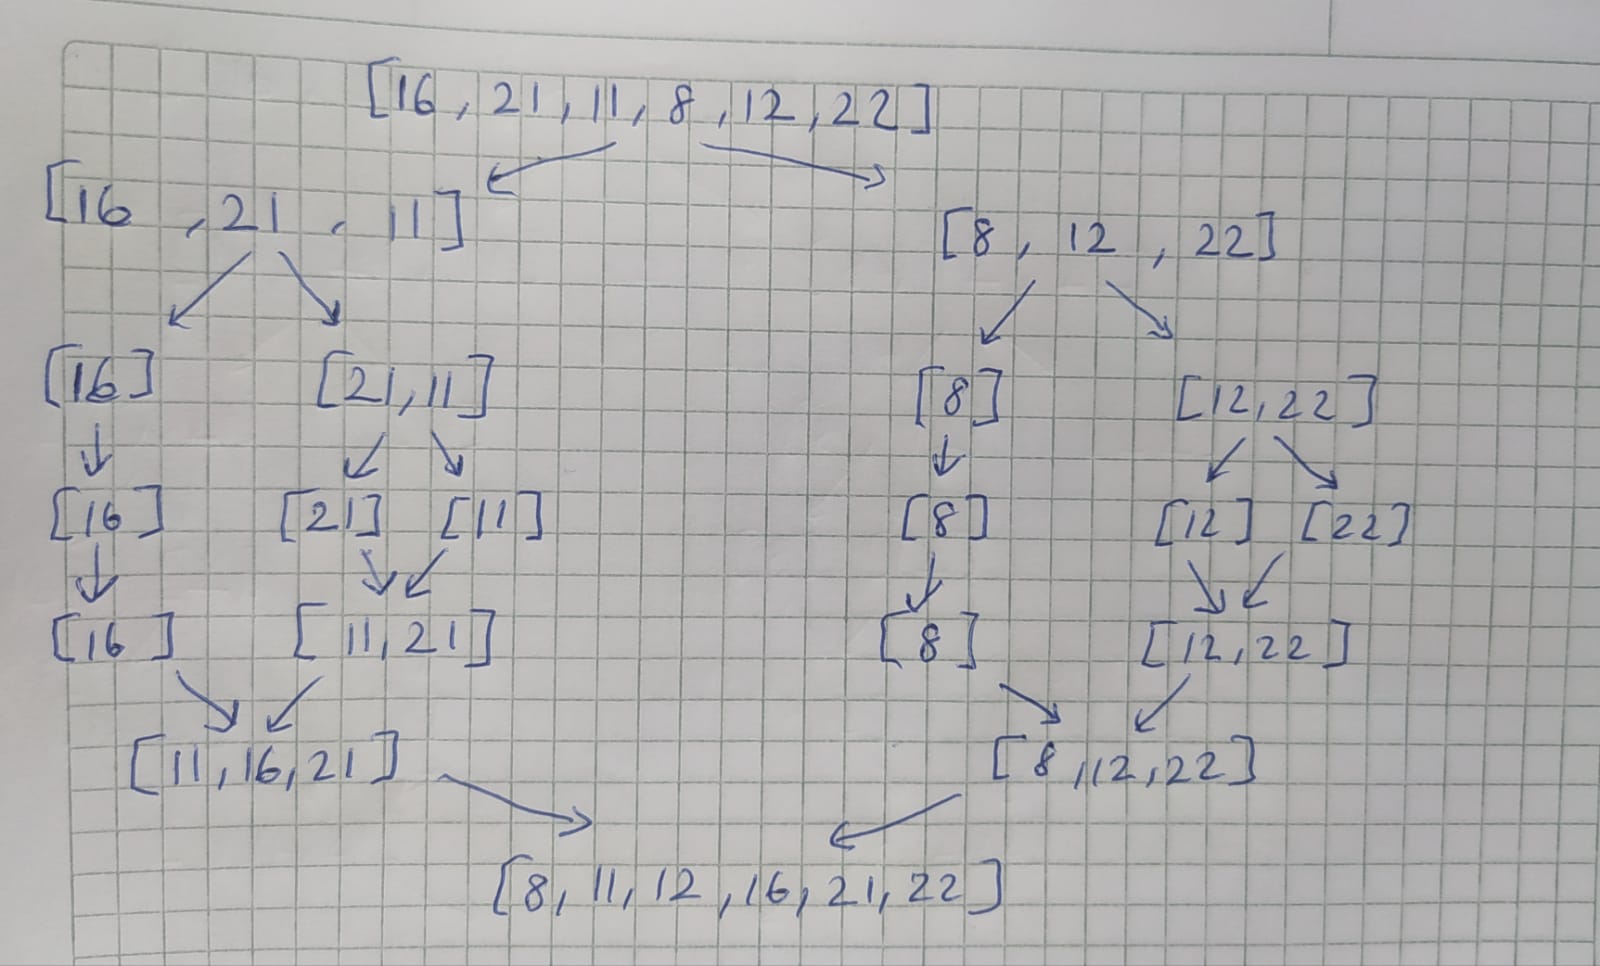 [16, 21, 11, 8, 12, 22]
[16, 21, 11] [8, 12, 22]
[16] [21, 11] [8] [12, 22]
[16] [21] [11] [8] [12] [22]
[16] [11, 21] [8] [12, 22]
[11, 16, 21] [8, 12, 22]
[8, 11, 12, 16, 21, 22]